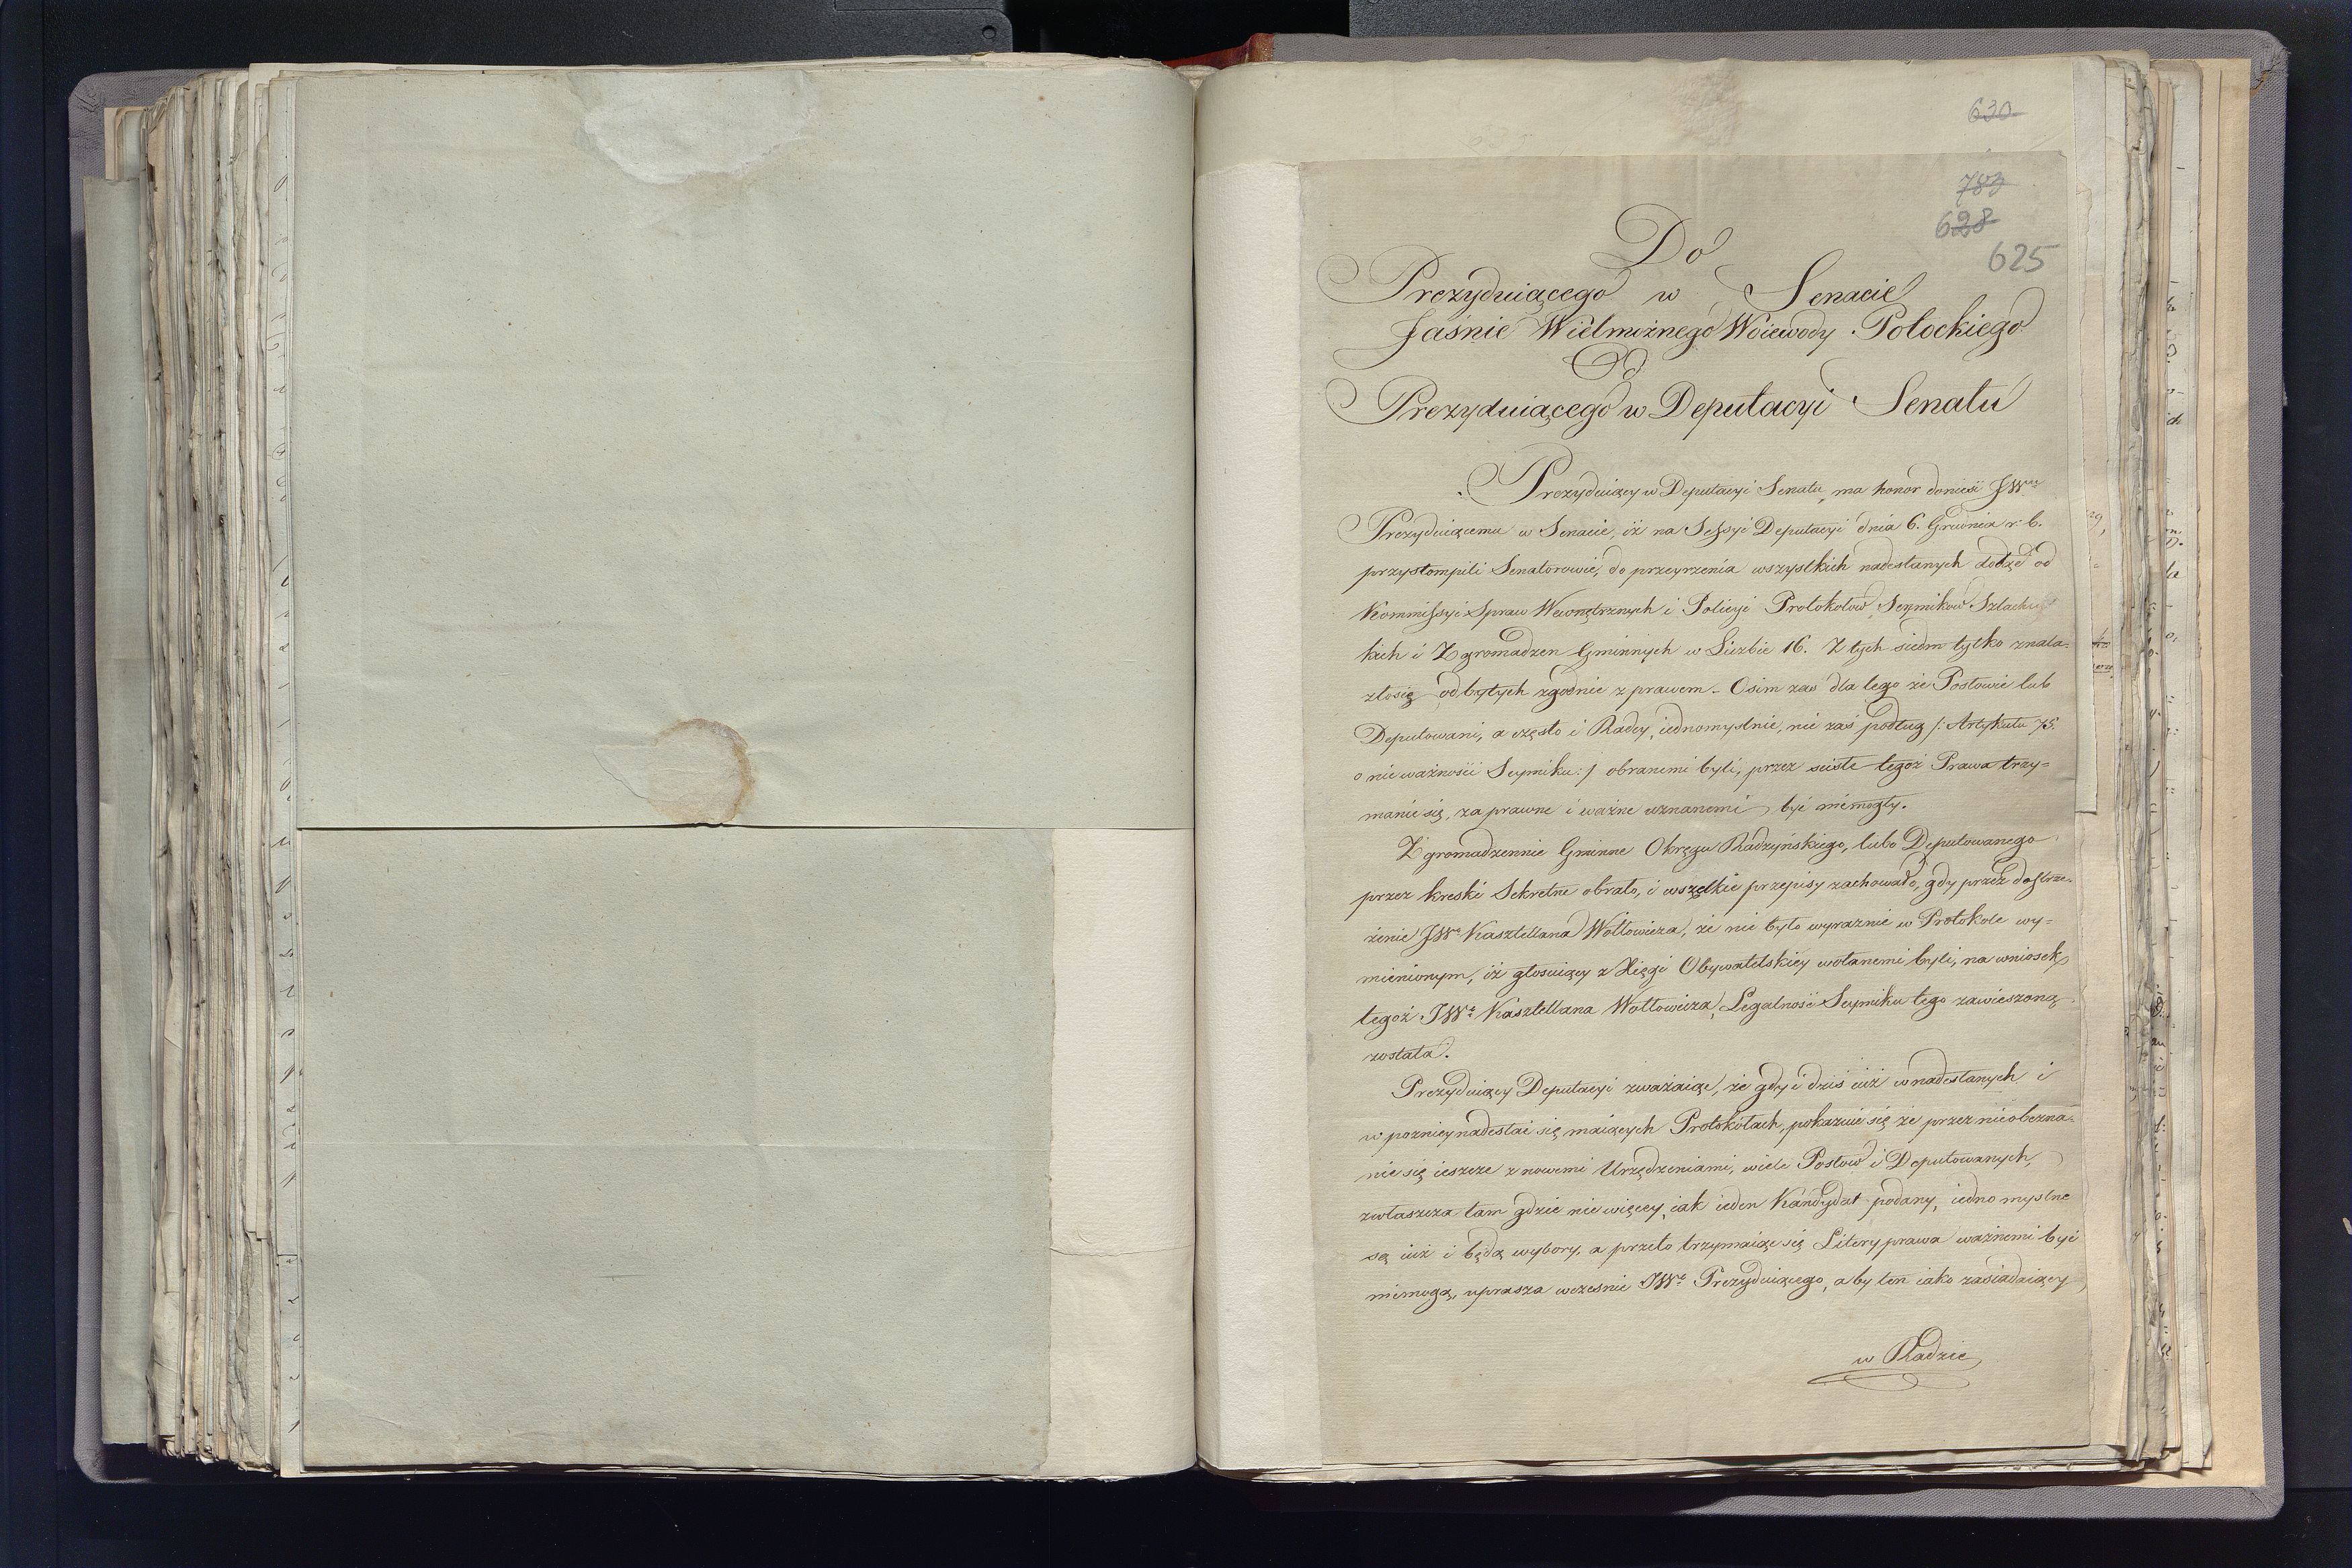 630
783
628
625
Do
Prezyduiącego w Senacie
Jaśnie Wielmożnego Woiewody Potockiego
Od
Prezyduiącego w Deputacyi Senatu
Prezyduiący w Deputacyi Senatu, ma honor donieść JWmu
Prezyduiącemu w Senacie, iż na Sessyi Deputacyi dnia 6. Grudnia r. b.
przystompili Senatorowie, do przeyrzenia wszystkich nadesłanych dotąd od
Kommissyi Spraw Wewnętrznych i Policyi Protokołow, Seymikow Szlachec
kich i Zgromadzen Gminnych w Liczbie 16. Z tych siedm tylko znala-
zło się odbytych zgodnie z prawem. Osim zaś dla tego że Posłowie lub
Deputowani, a często i Radcy, iednomyslnie, nie zaś podług /: Artykułu 75.
o nie ważności Seymiku :/ obranemi byli, przez sciste tegoż Prawa trzy=
manie się, za prawne i ważne uznanemi być niemogły.
Zgromadzennie Gminne Okręgu Radzyńskiego, lubo Deputowanego
przez kreski Sekretne obrało, i wszelkie przepisy zachowało, gdy przez dostrze-
żenie JWo Kasztellana Wołłowicza, że nie było wyraznie w Protokole wy=
mienionym, iż głosuiący z Xięgi Obywatelskiey wołanemi byli, na wniosek
tegoż JWo Kasztellana Wołłowicza, Legalność Seymiku tego zawieszoną
została.
Prezyduiący Deputacyi zważaiąc, że gdy i dziś iuż w nadesłanych i
w pozniey nadesłać się maiących Protokołach, pokazuie się że przez nieobezna-
nie się ieszcze z nowemi Urządzeniami, wiele Posłow i Deputowanych,
zwłaszcza tam gdzie nie więcey iak ieden Kandydat podany, iedno myslne
są iuż i będą wybory, a przeto trzymaiąc się Litery prawa ważnemi być
niemogą, uprasza wczesnie JWo Prezyduiącego, aby ten iako zasiadaiący
w Radzie